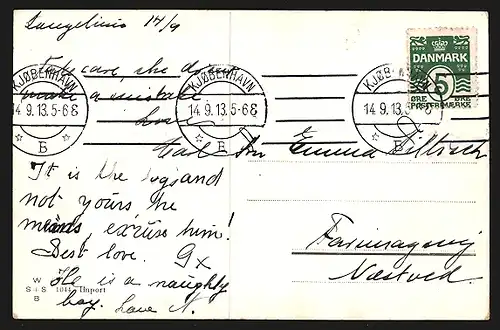 Langelinie 14/9
Take care, she don't
make a mistake
Love
KJØBENHAVN
14.9.13.5-6E
B
KJØBENHAVN
14.9.13.5-6E
B
14.9.13.5-6E
B
DANMARK
5
ØRE ØRE
POSTFRIMÆRKE
Emma
It is the
not yours he
means, excuse him!
Best love. Gx
He is a naughty
boy. Love A.
W
S + S 1044 Import
B
Farimagsvej
Næstved.